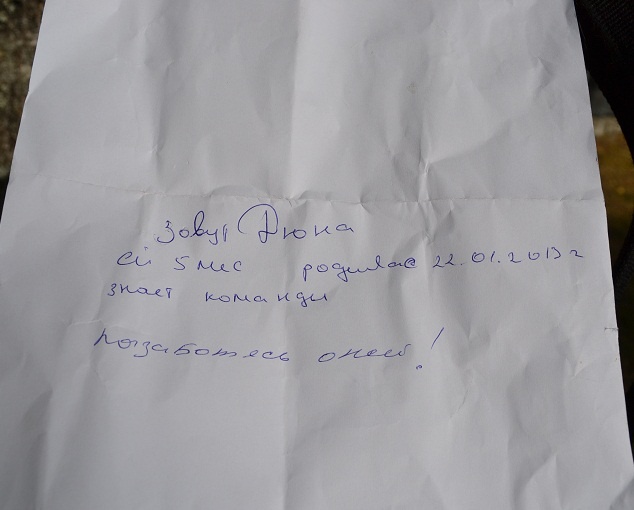 Зовут Дюна
ей 5 мес родилас 22.01.2013 г
знает команды
позаботесь о ней!